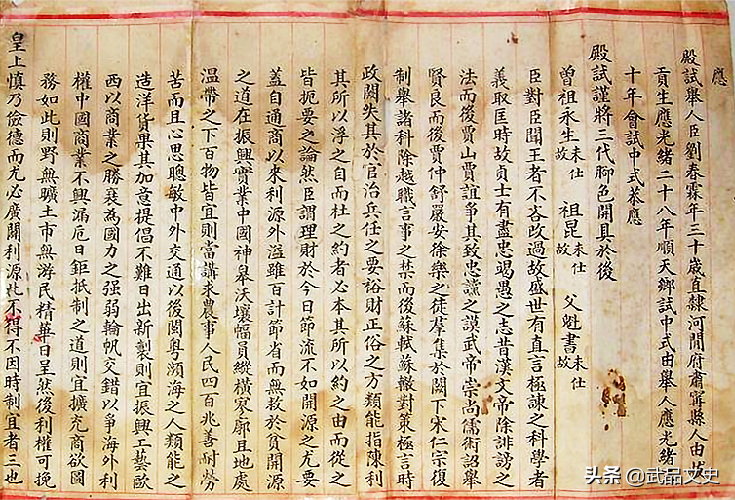 應
殿試舉人臣劉春霖年三十歲直隸河間府肅寧縣人由拔
貢生應光緒二十八年順天鄉試中式由舉人應光緒
十年會試中式恭應
殿試謹將三代腳色開具於後
曾祖永生未仕故 祖昆未仕故 父魁書未仕故
臣對臣聞王者不吝改過故盛世有直言極諫之科學者
義取匡時故貞士有盡忠竭愚之志昔漢文帝除誹謗之
法而後賈山賈誼爭其致忠讜之謨武帝崇尚儒術詔舉
賢良而後賈仲舒嚴安徐樂之徒羣集於闕下宋仁宗復
制舉諸科除越職言事之禁而後蘇軾蘇轍對策極言時
政闕失其於官治兵任之要裕財正俗之方類能指陳利
其所以浮之自而杜之約者必本其所以約之由而從之
皆扼要之論然臣謂理財於今日節流不如開源之尤要
蓋自通商以來利源外溢雖百計節省而無救於貧開源
之道在振興實業中國神皋沃壤幅員縱橫寥廓且地處
溫帶之下百物皆宜則當講求農事人民四百兆善耐勞
苦而且心思聰敏中外交通以後閩粵瀕海之人類能之
造洋貨果其加意提倡不難日出新製則宜振興工藝歐
西以商業之勝衰為國力之强弱輪帆交錯以爭海外利
權中國商業不興漏卮日鉅抵制之道則宜擴充商欲圖
務如此則野無曠土市無游民精華日呈然後利權可挽
皇上慎乃儉德而尤必廣闢利源此不得不因時制宜者三也
头条 @武品文史